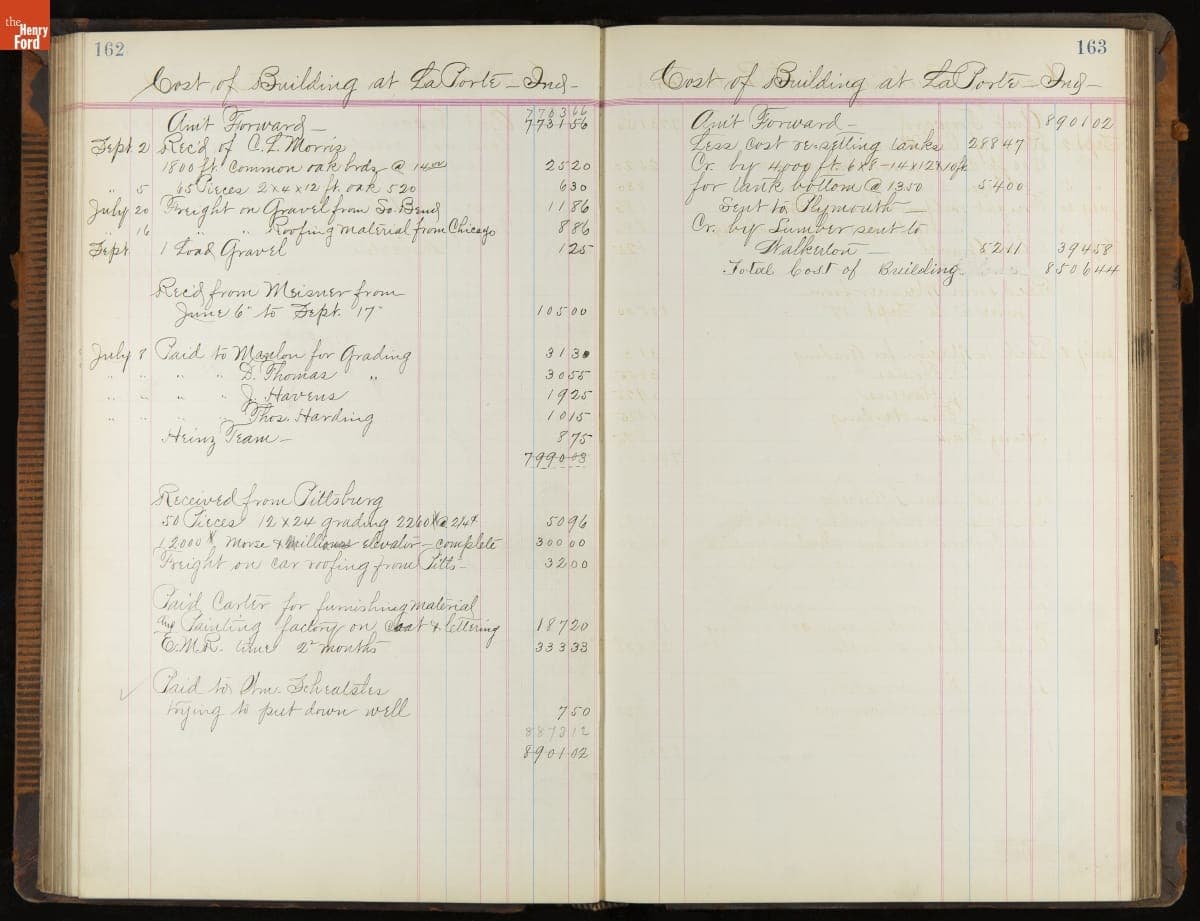 the
Henry
Ford
162
Cost of Building at LaPorte - Ind -
770366
Am't Forward - 773156
Sept 2 Rec'd of C. L. Morris
1800 ft. Common oak brds @ 14 00 2520
" 5 65 Pieces 2 x 4 x 12 ft. oak 520 630
July 20 Freight on Gravel from So. Bend 1186
" 16 " " Roofing material from Chicago 886
Sept. 1 Load Gravel 125
Rec'd from Meisner from
June 6" to Sept. 17" 10500
July 8 Paid to for Grading 3130
" " " " D. Thomas " 3055
" " " " J. Havens 1925
" " " " Thos. Harding 1015
Heinz Team - 875
799003
Received from Pittsburg
50 Pieces 12 x 24 grading 2260 # @ 2 1/4 ¢ 5096
12000 # Morse & elevator - complete 30000
Freight on car roofing from Pitts - 3200
Paid Carter for furnishing material
and Painting factory on coat & lettering 18720
E. M. R. time 2" months 33333
Paid to Wm.
trying to put down well 750
887312
890102
163
Cost of Building at LaPorte - Ind -
Am't Forward - 890102
Less cost re-setting tanks 28847
Cr. by 4000 ft. 6x8 - 14x12x10ft
for tank bottom @ 1350 5400
Sent to Plymouth -
Cr. by Lumber sent to
Walkerton - 5211 39458
Total Cost of Building 850644